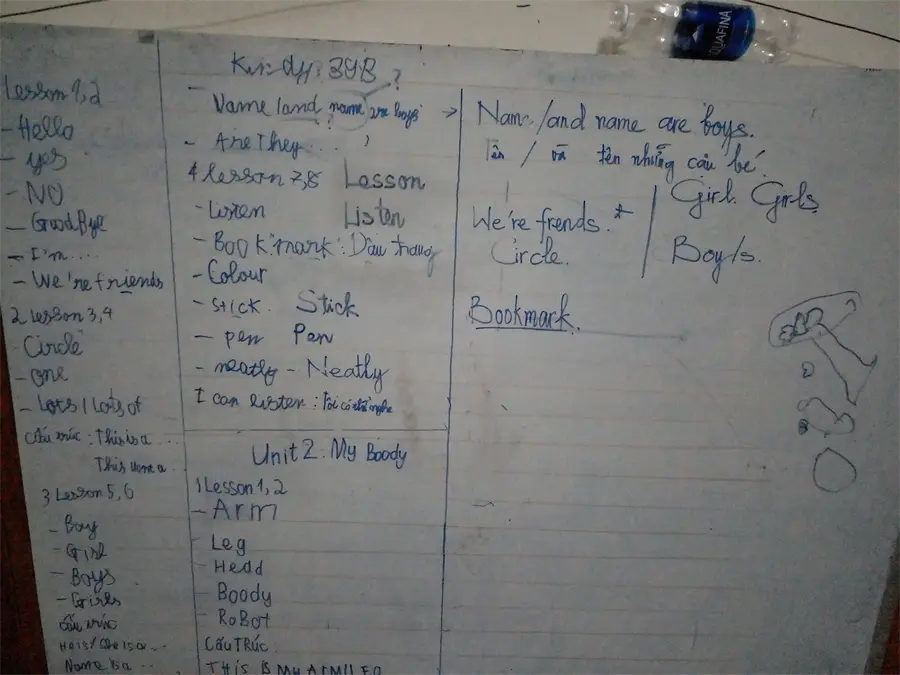 Lesson 1,2
- Hello
- yes
- NO
- GoodBye
- I'm ...
- We're friends
2 Lesson 3,4
Circle
- one
- Lots / Lots of
Cấu trúc : This is a ...
This is not a ..
3 Lesson 5,6
- Boy
- Girl
- Boys
- Girls
Cấu trúc
He is / She is a ...
Name is a ..
Kindy 39B
- Name / and name are boys ?
- Are They ... ?
4 lesson 7,8 Lesson
- listen Listen
- Book mark : Dấu trang
- Colour
- stick. Stick
- pen Pen
- neatly - Neathy
I can listen : Tôi có thể nghe
Unit 2 : My Boody
1 Lesson 1,2
- Arm
Leg
Head
Boody
RoBot
Cấu TRúc
THis is My ARM/LEG
→ Name /and name are boys.
Tên / và tên những cậu bé.
We're frends.*
Circle.
Girl. Girls
Boy/s.
Bookmark.
AQUAFINA